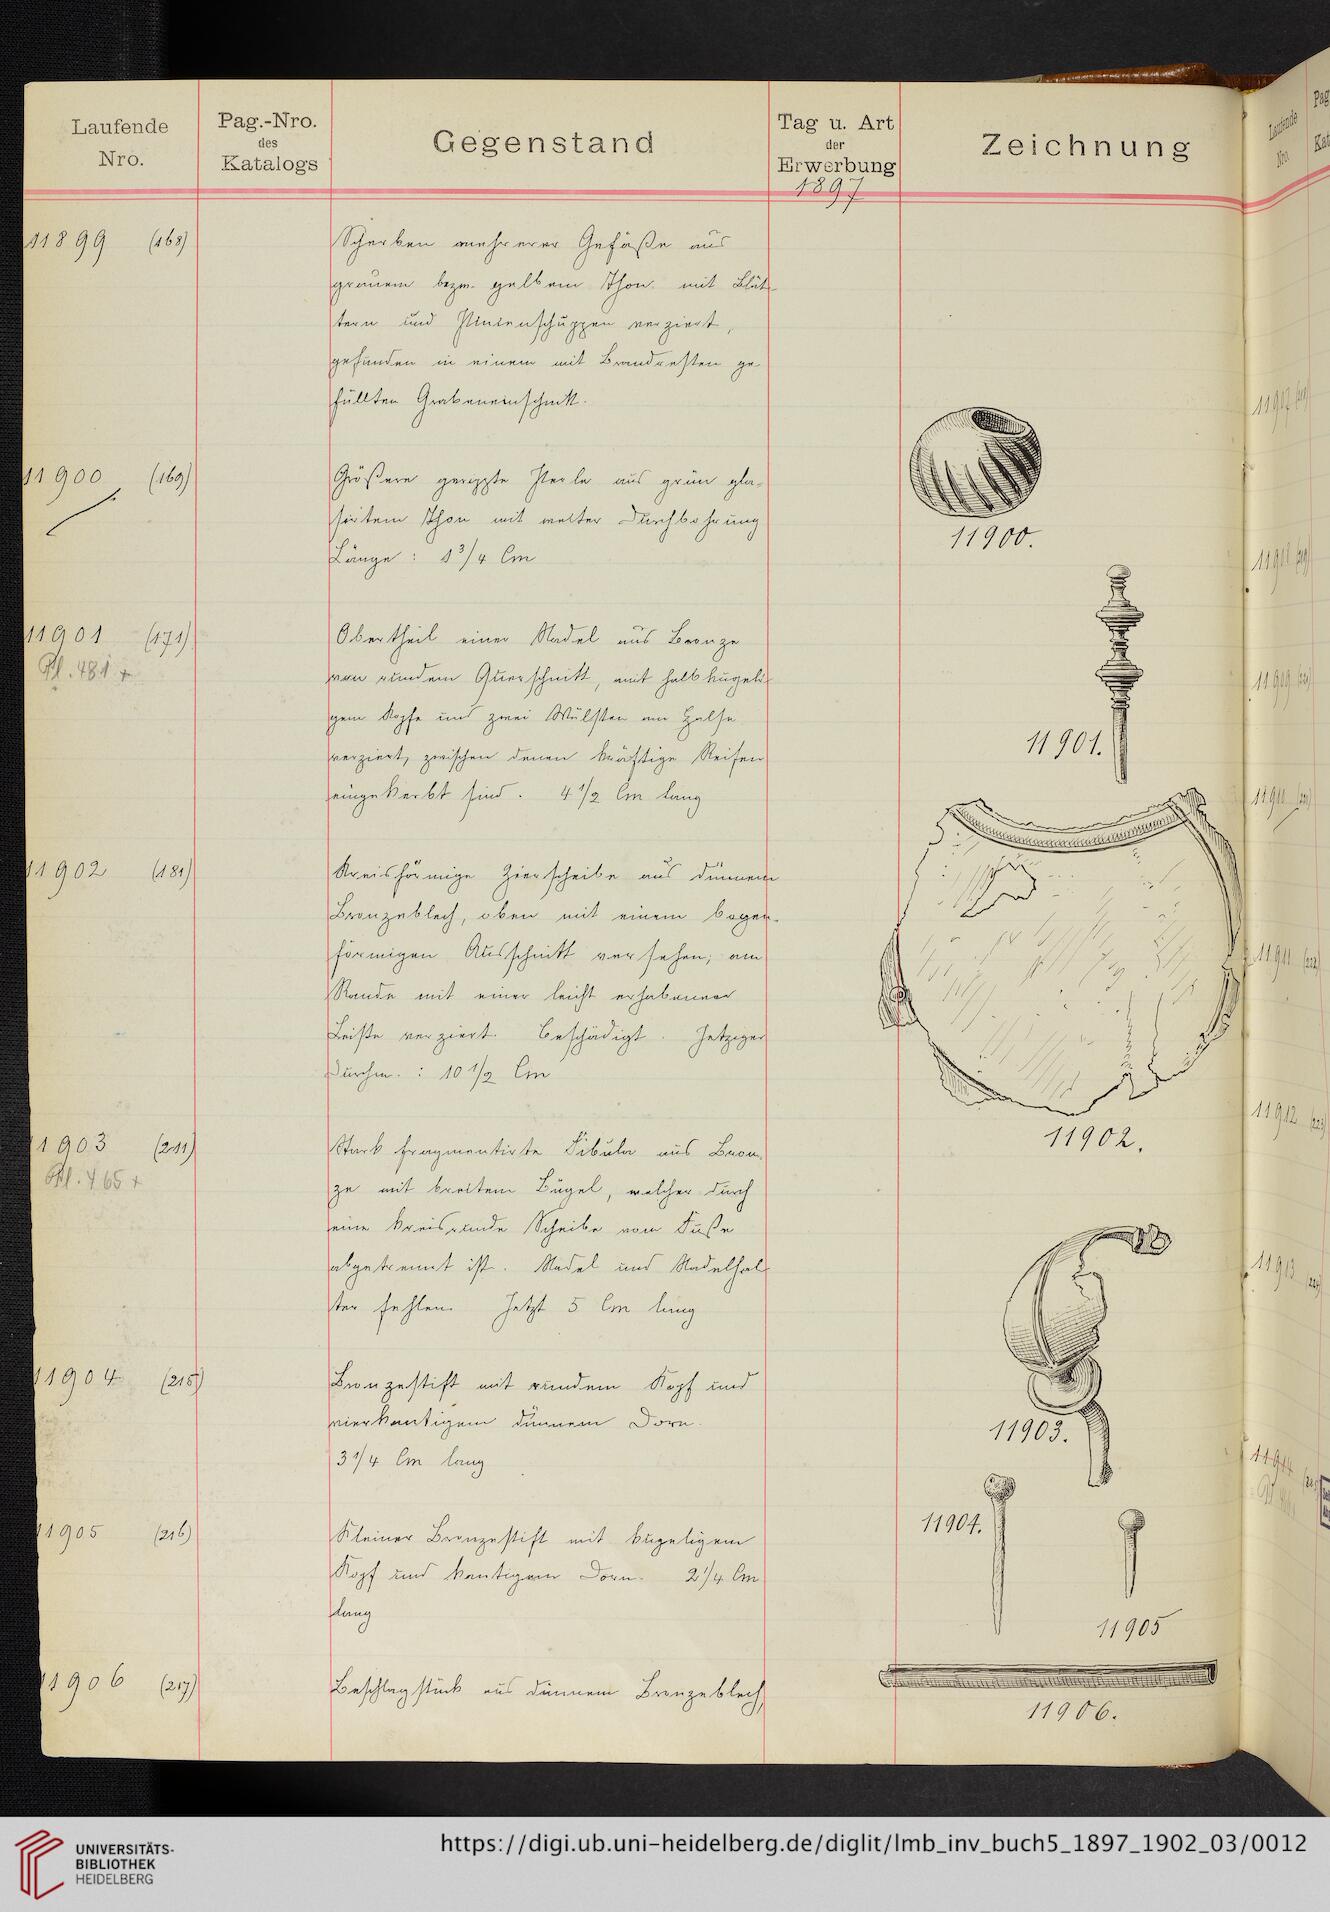 Laufende
Nro.
Pag.-Nro.
des
Katalogs
Gegenstand
Tag u. Art
der
Erwerbung
Zeichnung
1897
11899 (168)
Scherben mehrerer Gefäße aus
grauem bezw. gelbem Thon mit Blät-
tern und Pinienschuppen verziert,
gefunden in einem mit Brandresten ge-
füllten Grabeneinschnitt.
11900 (169)
Größere gerippte Perle aus grün gla-
sirtem Thon mit weiter Durchbohrung
Länge : 1 3/4 Cm
11900.
11901 (171)
Pl. 481 +
Obertheil einer Nadel aus Bronze
von rundem Querschnitt, mit halbkugeli-
gem Kopfe und zwei Wülsten am Halse
verziert, zwischen denen kräftige Reifen
eingekerbt sind. 4 1/2 Cm lang
11901.
11902 (181)
Kreisförmige Zierscheibe aus dünnem
Bronzeblech, oben mit einem bogen-
förmigen Ausschnitt versehen; am
Rande mit einer leicht erhabenen
Leiste verziert. Beschädigt. Jetziger
Durchm. : 10 1/2 Cm
11902.
11903 (211)
Pl. 465 +
Stark fragmentirte Fibula aus Bron-
ze mit breitem Bügel, welcher durch
eine kreisrunde Scheibe vom Fuße
abgetrennt ist. Nadel und Nadelhal-
ter fehlen. Jetzt 5 Cm lang
11903.
11904 (215)
Bronzestift mit rundem Kopf und
vierkantigem dünnem Dorn.
3 1/4 Cm lang
11904.
11905 (216)
Kleiner Bronzestift mit kugeligem
Kopf und kantigem Dorn. 2 1/4 Cm
lang
11905
11906 (217)
Beschlagstück aus dünnem Bronzeblech,
11906.
Laufende
Nro.
Pag
Kat
11907
11908
11909
11910
11911 (222)
11912 (223)
11913
11914
UNIVERSITÄTS-
BIBLIOTHEK
HEIDELBERG
https://digi.ub.uni-heidelberg.de/diglit/lmb_inv_buch5_1897_1902_03/0012